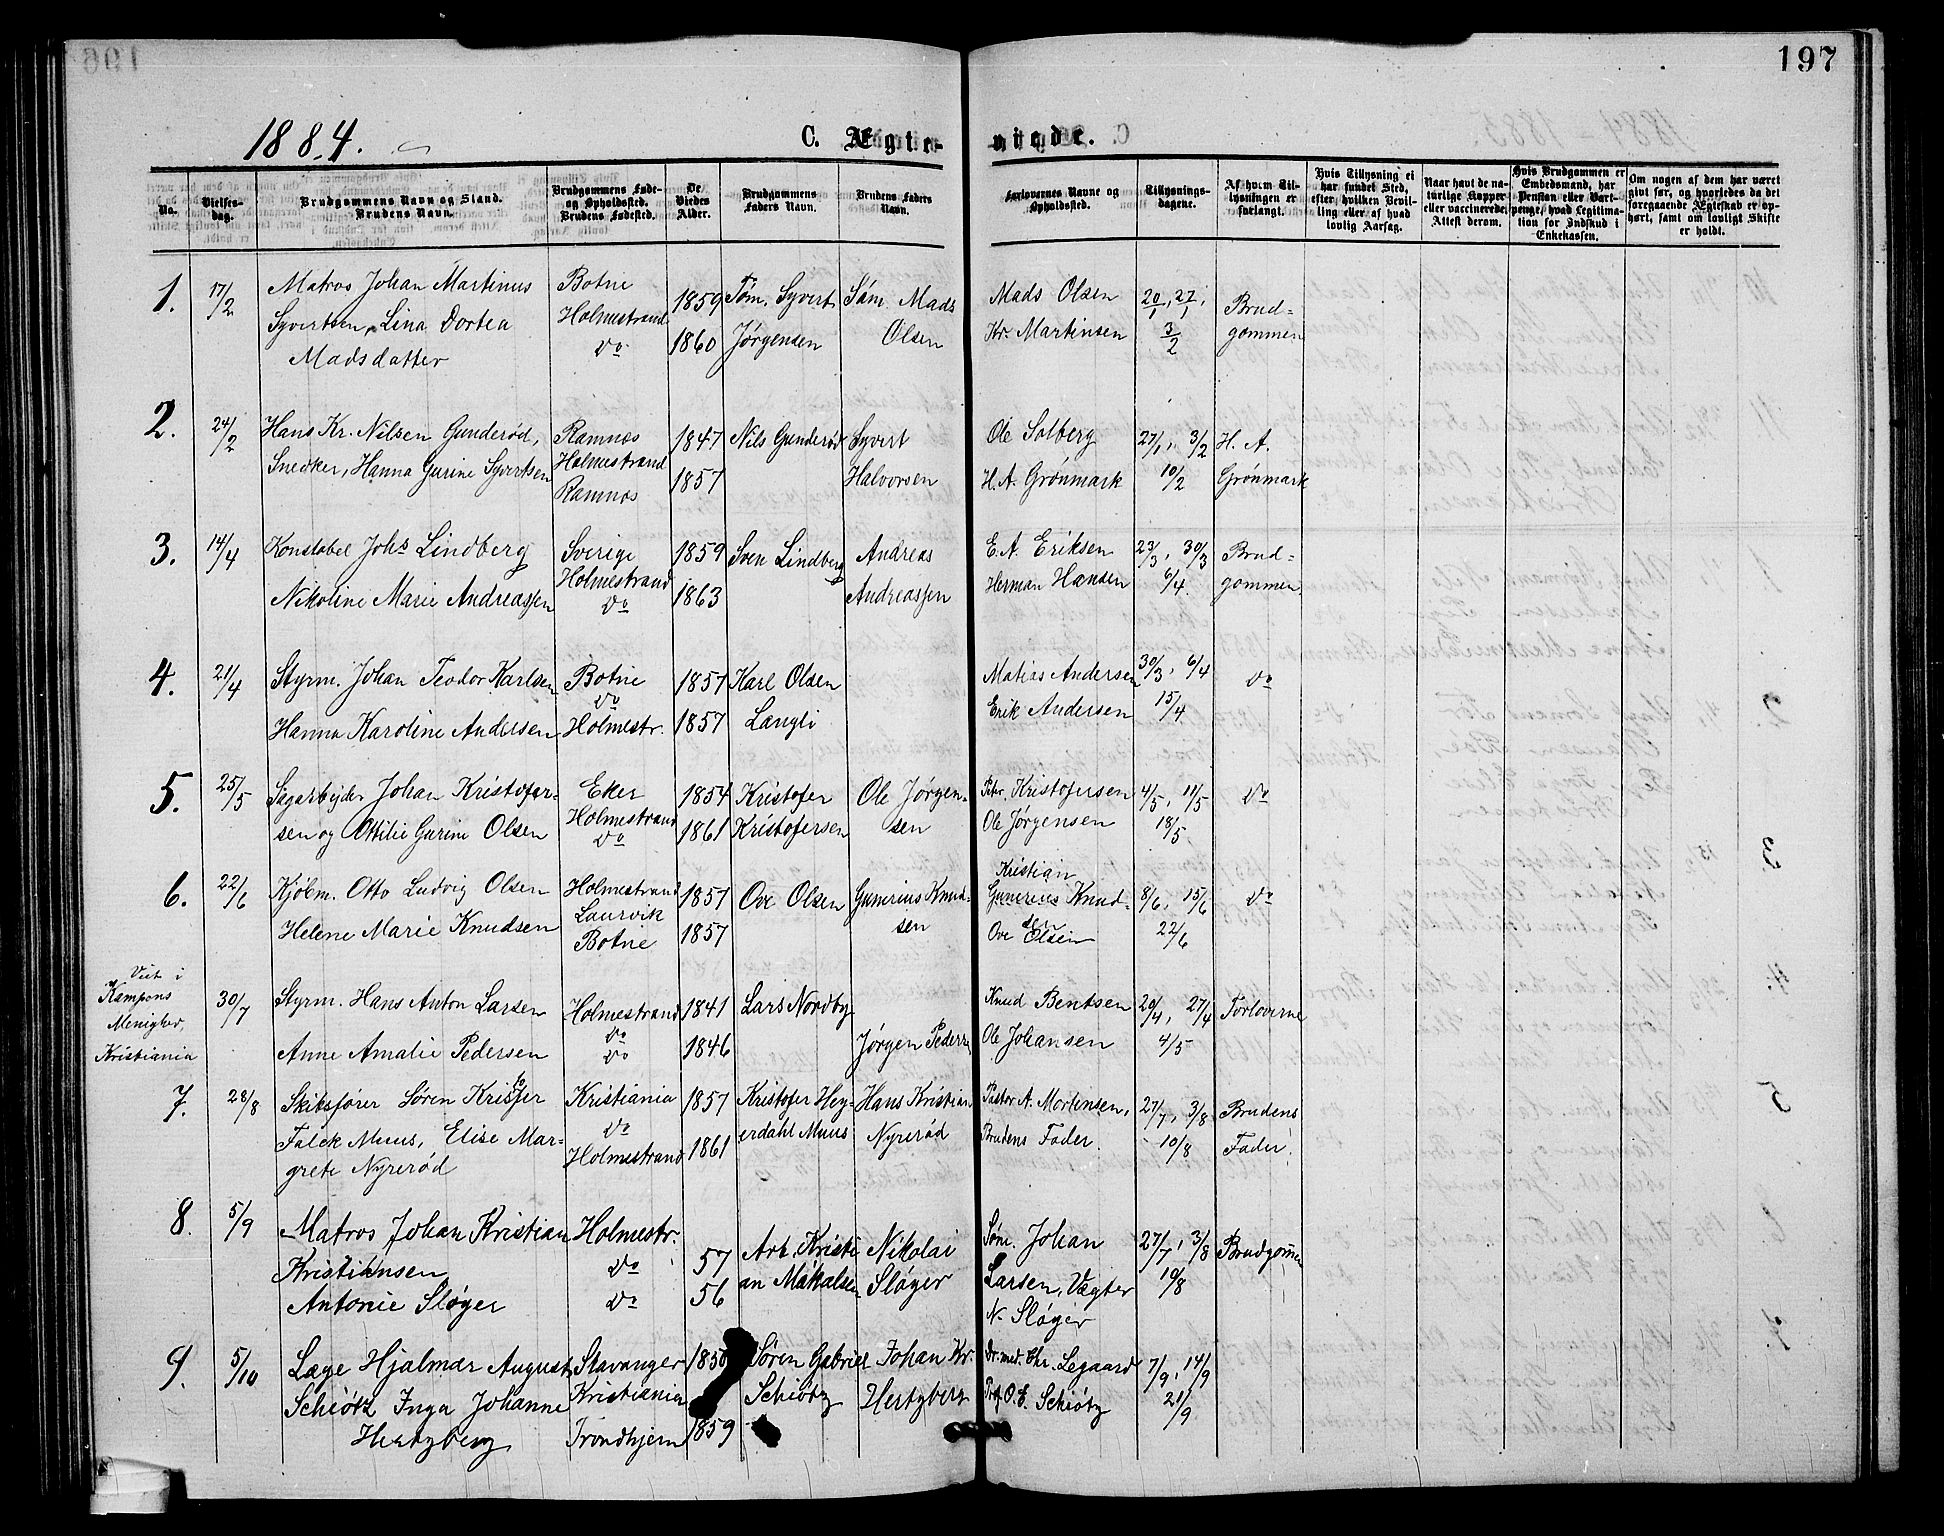 197
1884.
C. Ægte-
viede.
No.
Vielses-
dag.
Brudgommens Navn og Stand.
Brudens Navn.
Brudgommens Føde-
og Opholdssted.
Brudens Fødested.
De
Viedes
Alder.
Brudgommens
Faders Navn.
Brudens Faders
Navn.
Forlovernes Navne og
Opholdssted.
Tillysnings-
dagene.
Af hvem Til-
lysningen er
forlangt.
Hvis Tillysning ei
har fundet Sted,
efter hvilken Bevil-
ling eller af hvad
lovlig Aarsag.
Naar havt de na-
turlige Kopper
eller vaccinerede,
Attest derom.
Hvis Brudgommen er
Embedsmand, har
Pension eller Vart-
penge, hvad Legitima-
tion for Indskud i
Enkekassen.
Om nogen af dem har været
givt før, og hvorledes da det
foregaaende Ægteskab er op-
hørt, samt om lovligt Skifte
er holdt.
1. 17/2
Matros Johan Martinus
Syvertsen, Lina Dortea
Madsdatter
Botne
Holmestrand
do
1859
1860
Tøm. Syvert
Jørgensen
Søm. Mads
Olsen
Mads Olsen
Kr. Martinsen
20/1, 27/1,
3/2
Brud-
gommen
2. 24/2
Hans Kr. Nilsen Gunderød,
Snedker, Hanna Gurine Syvertsen
Ramnes
Holmestrand
Ramnes
1847
1857
Nils Gunderød
Syvert
Halvorsen
Ole Solberg
H. A. Grønmark
27/1, 3/2
10/2
H. A.
Grønmark
3. 14/4
Konstabel Johs Lindberg
Nikoline Marie Andreassen
Sverige
Holmestrand
do
1859
1863
Sven Lindberg
Andreas
Andreassen
E. A. Eriksen
Herman Hansen
23/3, 30/3
6/4
Brud-
gommen
4. 21/4
Styrm. Johan Teodor Karlsen
Hanna Karoline Andersen
Botne
do
Holmestr.
1857
1857
Karl Olsen
Langli
Matias Andersen
Erik Andersen
30/3, 6/4
15/4
do
5. 25/5
Sagarbejder Johan Kristofer-
sen og Ottilie Gurine Olsen
Eker
Holmestrand
do
1854
1861
Kristofer
Kristofersen
Ole Jørgen-
sen
Petr. Kristofersen
Ole Jørgensen
4/5, 11/5
18/5
do
6. 22/6
Kjøbm. Otto Ludvig Olsen
Helene Marie Knudsen
Holmestrand
Laurvik
Botne
1857
1857
Ove Olsen
Gunerius Knud-
sen
Kristian
Gunerius Knud-
sen
Ove Olsen
8/6, 15/6
22/6
do
Viet i
Kampens
Menighed,
Kristiania
30/7
Styrm. Hans Anton Larsen
Anne Amalie Pedersen
Holmestrand
do
do
1841
1846
Lars Nordby
Jørgen Peders
Knud Bentsen
Ole Johansen
20/4, 27/4
4/5
Forloverne
7. 28/8
Skibsfører Søren Kristofer
Falck Muus, Elise Mar-
grete Nyrerød
Kristiania
do
Holmestrand
1857
1861
Kristofer Hey-
erdahl Muus
Hans Kristian
Nyrerød
Pastor A. Mortensen,
Brudens Fader
27/7, 3/8
10/8
Brudens
Fader
8. 5/9
Matros Johan Kristian
Kristiansen
Antonie Sløger
Holmestr.
do
do
57
56
Arb. Kristi
an Mikalsen
Nikolai
Sløger
Søm. Johan
Larsen, Vægter
N. Sløger
27/7, 3/8
10/8
Brudgommen
9. 5/10
Læge Hjalmar August
Schiøtz Inga Johanne
Hertzberg
Stavanger
Kristiania
Trondhjem
1850
1859
Søren Gabriel
Schiøtz
Johan Kr.
Hertzberg
Dr. med. Chr. Legaard
Prof. O. E. Schiøtz
7/9, 14/9
21/9